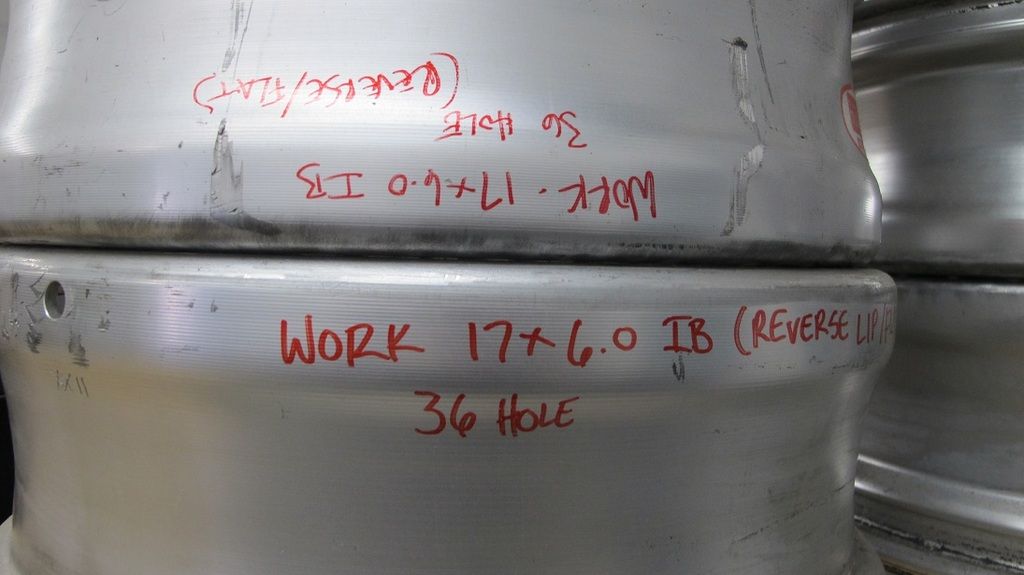 WORK - 17x6.0 IB
36 HOLE
(REVERSE/FLAT)
WORK 17x6.0 IB (REVERSE LIP/
36 HOLE